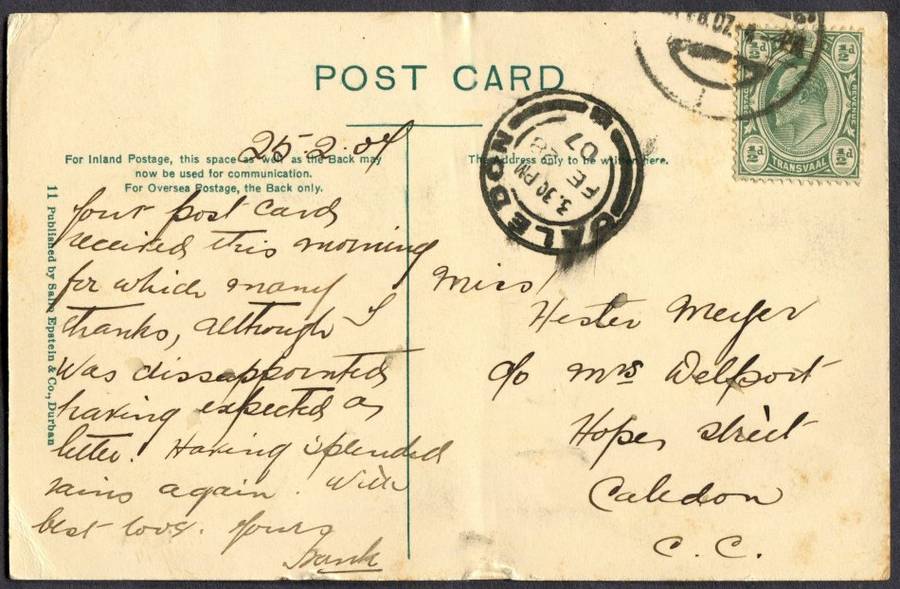 POST CARD
For Inland Postage, this space as well as the Back may
now be used for communication.
For Oversea Postage, the Back only.
The Address only to be written here.
11 Published by Sallo Epstein & Co., Durban
25.2.07
Your post cards
received this morning
for which many
thanks, although I
was dissappointed
having expected a
letter. Having splended
rains again. With
best love. Yours
Frank
Miss
Hester Meyer
c/o Mrs Delport
Hope street
Caledon
C. C.
CALEDON
3.30 PM
FE 28
07
½d ½d
POSTAGE REVENUE
½d TRANSVAAL ½d
07